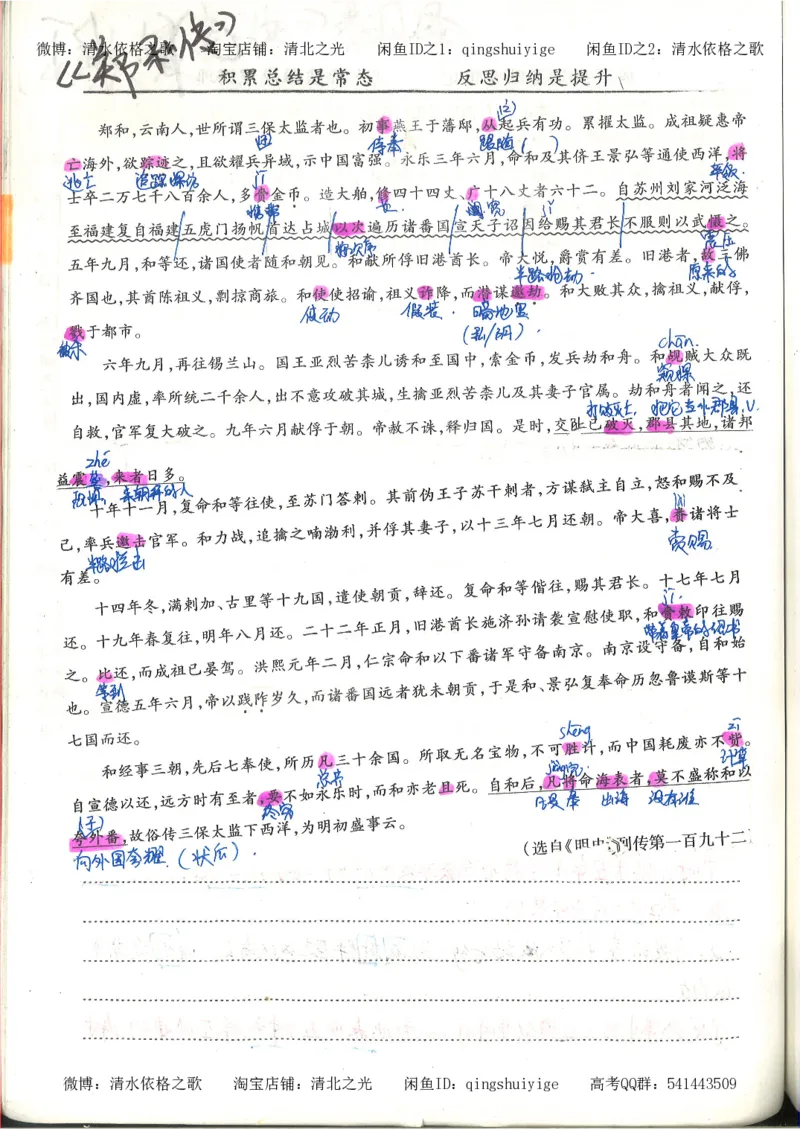 微博：清水依格之歌 淘宝店铺：清北之光 闲鱼ID之1：qingshuiyige 闲鱼ID之2：清水依格之歌
《郑和传》
积累总结是常态 反思归纳是提升
郑和，云南人，世所谓三保太监者也。初事燕王于藩邸，从起兵有功。累擢太监。成祖疑惠帝
侍奉 跟随
亡海外，欲踪迹之，且欲耀兵异域，示中国富强。永乐三年六月，命和及其侪王景弘等通使西洋，将
逃亡 追踪 率领
士卒二万七千八百余人，多赍金币。造大舶，修四十四丈、广十八丈者六十二。自苏州刘家河泛海
携带 长 阔宽
至福建复自福建五虎门扬帆首达占城以次遍历诸番国宣天子诏因给赐其君长不服则以武慑之。
按次序 震压
五年九月，和等还，诸国使者随和朝见。和献所俘旧港酋长。帝大悦，爵赏有差。旧港者，故三佛
半路抢劫 原来的
齐国也，其酋陈祖义，剽掠商旅。和使使招谕，祖义诈降，而潜谋邀劫。和大败其众，擒祖义，献俘，
假装 暗地里
戮于都市。
chān
六年九月，再往锡兰山。国王亚烈苦柰儿诱和至国中，索金币，发兵劫和舟。和觇贼大众既
窥探
出，国内虚，率所统二千余人，出不意攻破其城，生擒亚烈苦柰儿及其妻子官属。劫和舟者闻之，还
自救，官军复大破之。九年六月献俘于朝。帝赦不诛，释归国。是时，交阯已破灭，郡县其地，诸邦
zhé
益震詟，来者日多。
来朝拜的人
十年十一月，复命和等往使，至苏门答剌。其前伪王子苏干剌者，方谋弑主自立，怒和赐不及
己，率兵邀击官军。和力战，追擒之喃渤利，并俘其妻子，以十三年七月还朝。帝大喜，赉诸将士
半路拦击 赏赐
有差。
十四年冬，满剌加、古里等十九国，遣使朝贡，辞还。复命和等偕往，赐其君长。十七年七月
还。十九年春复往，明年八月还。二十二年正月，旧港酋长施济孙请袭宣慰使职，和赍敕印往赐
带着皇帝的诏书
之。比还，而成祖已晏驾。洪熙元年二月，仁宗命和以下番诸军守备南京。南京设守备，自和始
等到
也。宣德五年六月，帝以践阼岁久，而诸番国远者犹未朝贡，于是和、景弘复奉命历忽鲁谟斯等十
七国而还。
shēng zī
和经事三朝，先后七奉使，所历凡三十余国。所取无名宝物，不可胜计，而中国耗废亦不赀。
总共 计算
自宣德以还，远方时有至者，要不如永乐时，而和亦老且死。自和后，凡将命海表者，莫不盛称和以
出海 没有谁
夸外番，故俗传三保太监下西洋，为明初盛事云。
向外国夸耀（状后）
（选自《明史·列传第一百九十二
微博：清水依格之歌 淘宝店铺：清北之光 闲鱼ID：qingshuiyige 高考QQ群：541443509